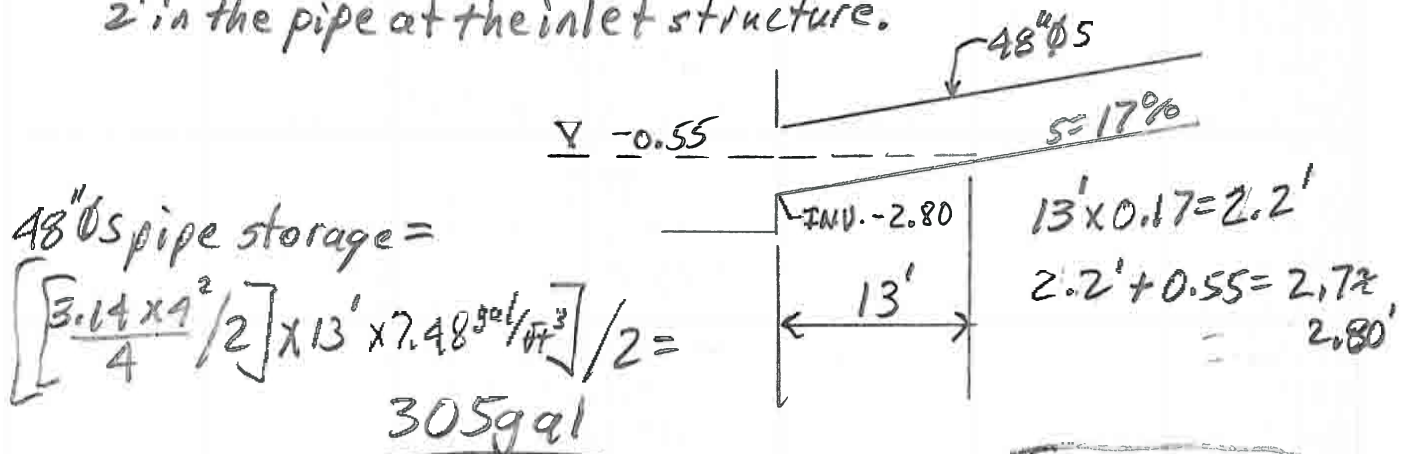 2' in the pipe at the inlet structure.
48"Ø S
S=17%
-0.55
INV. -2.80
13'
13' x 0.17 = 2.2'
2.2' + 0.55 = 2.7 ≈
= 2.80'
48"Ø S pipe storage =
[[3.14 x 4²/4 /2] x 13' x 7.48 gal/ft³]/2 =
305 gal